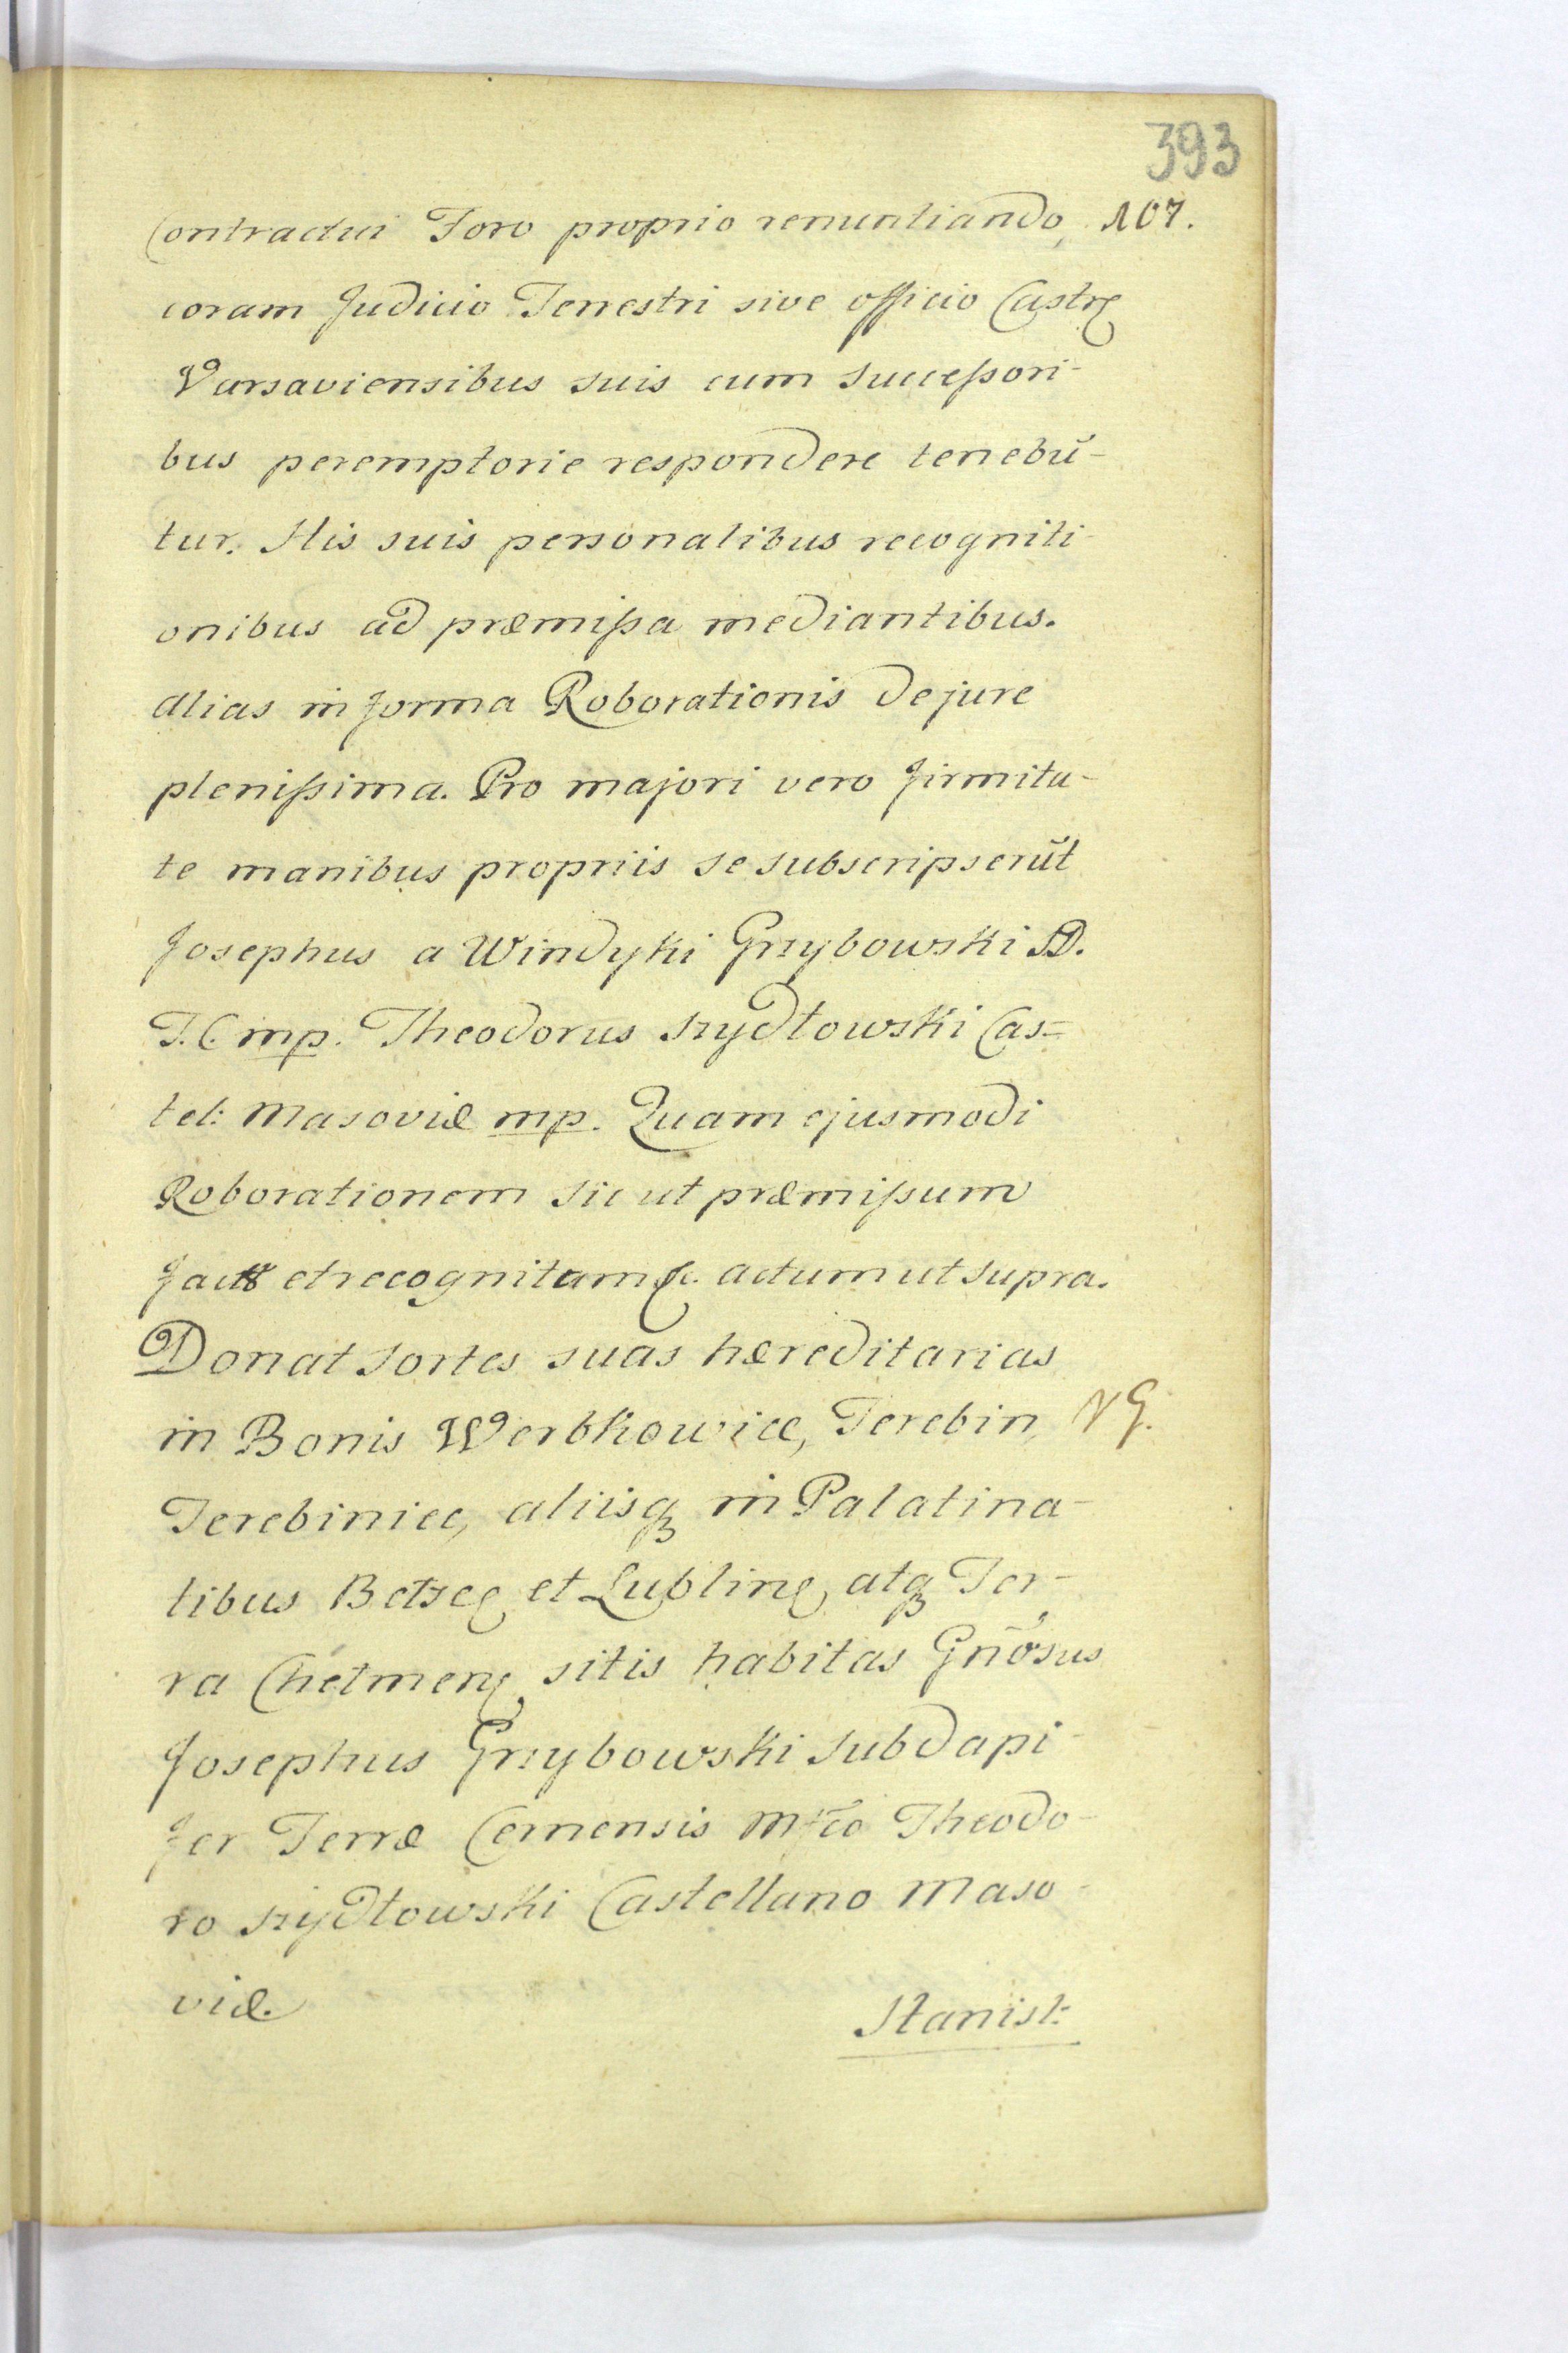 393
Contractui Foro proprio renuntiando, 107.
coram Judicio Terrestri sive officio Castrę
Varsaviensibus suis cum successori-
bus peremptorie respondere tenebū-
tur. His suis personalibus recogniti-
onibus ad præmissa mediantibus.
alias in forma Roborationis de jure
plenissima. Pro majori vero firmita-
te manibus propriis se subscripserūt
Josephus a Windyki Grzybowski SD.
T.C. mp. Theodorus Szydłowski Cas=
tel: Masoviæ mp. Quam ejusmodi
Roborationem sic ut præmissum
et recognitam &c. actum ut supra.
Donat sortes suas hæreditarias
in Bonis Werbkowice, Terebin, NG.
Terebiniec, aliisq3 in Palatina-
tibus Bełzcę et Lublinę atq3 Ter-
ra Chełmenę sitis habitas Gnōsus
Josephus Grzybowski Subdapi-
fer Terræ Cernensis Mfco Theodo-
ro Szydłowski Castellano Maso-
viæ.
Stanisł: